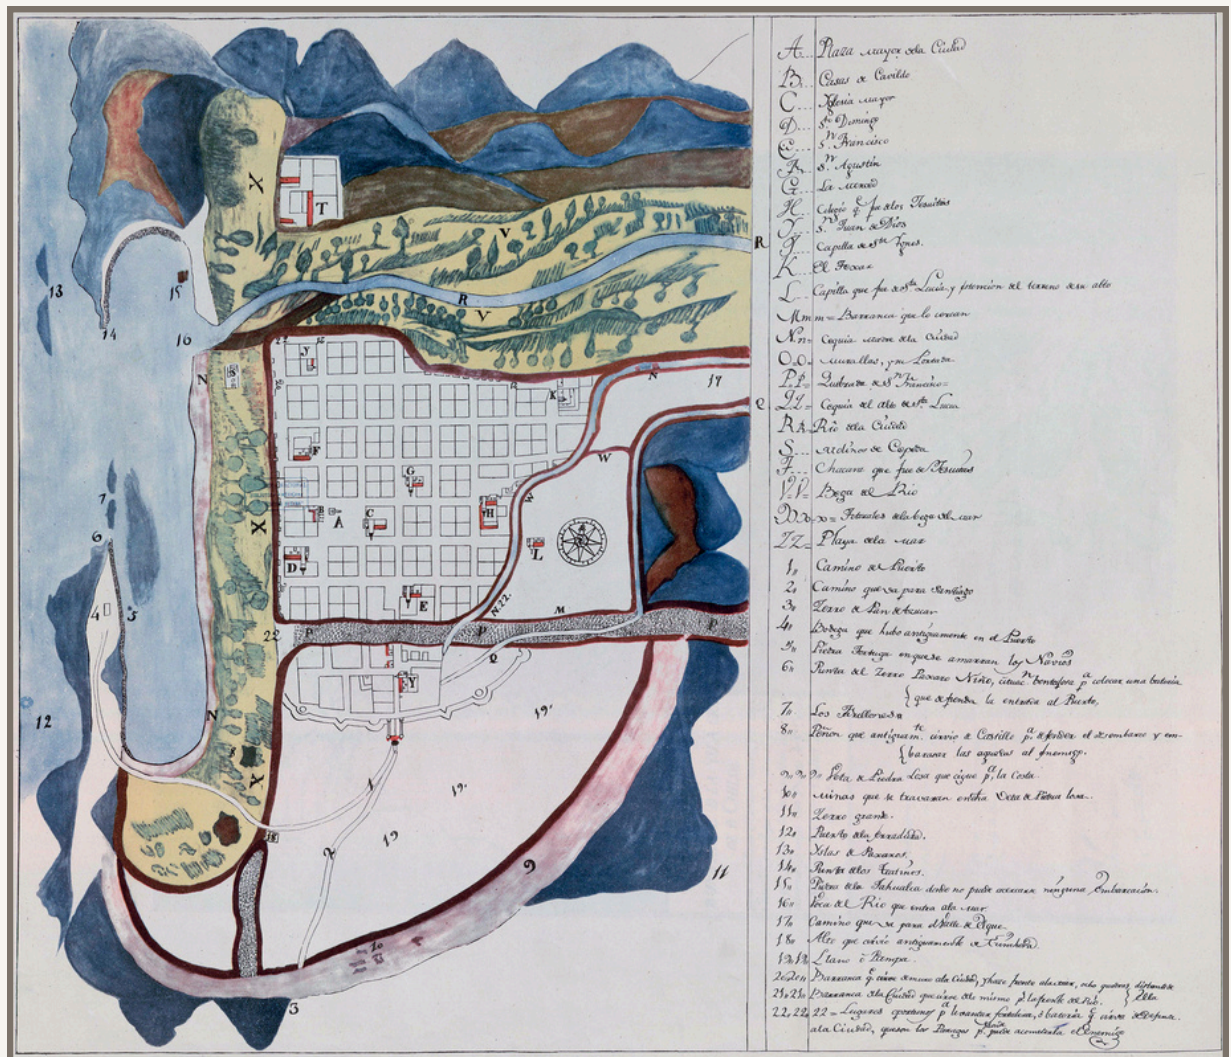 A... Plaza mayor de la Ciudad
B... Casas de Cavildo
C... Yglesia mayor
D... Sto Domingo
E... Sn Francisco
F... Sn Agustin
G... La Merced
H... Colegio q. fue de los Jesuitas
Y... Sn Juan de Dios
J... Capilla de Sta Ynes.
K...
L... Capilla que fue de Sta Lucia, y del terreno de su alto
Mm m = Barranca que lo cercan
N.n= Cequia de la Ciudad
O=O=
P.P= Quebrada de Sn Francisco=
QQ= Cequia del alto de Sta Lucia
RR= Rio de la Ciudad
S... de
T... Chacara que fue de Jesuitas
V=V= Bega del Rio
X.X. x= de la bega del mar
ZZ= Playa de la mar
1" Camino del Puerto
2" Camino que va para Santiago
3" Zerro de Pan de Azucar
4" Bodega que hubo antiguamente en el Puerto
5" Piedra Tortuga en que se amarran los Navios
6" Punta del Zerro Paxaro Niño, p.a colocar una bateria
{ que defienda la entrada al Puerto,
7" Los
8" Peñon que antiguam.te sirvio de Castillo p.a defender el desembarco y em-
{ barazar las aguadas al Enemigo.
9" Veta de Piedra Losa que sigue p.r la Costa.
10" minas que se travaxan en dha Veta de Piedra losa..
11" Zerro grande.
12" Puerto de la Erradura.
13" Yslas de Paxaros.
14" Punta de los
15" Piedra de la donde no puede acercarse ninguna Embarcacion.
16" Voca del Rio que entra a la mar.
17" Camino que va para el Valle de Elque.
18" Alto que sirvio antiguamente de
19.19. Llano ô Pampa.
20.20" Barranca q.e sirve de muro a la Ciudad, y hace frente a la mar, ocho quadras distante de
21.21" Barranca de la Ciudad que sirve de lo mismo p.r la frente del Rio. } Ella
22,22, 22= Lugares oportunos p.a levantar fortaleza, ô bateria q.e sirva de defensa
a la Ciudad, que son los Parages p.r donde puede acometerla el Enemigo
X
T
V
R
R
V
13
14
15
16
N
S
Y
K
N
17
Q
F
G
W
W
7
6
B
A
C
H
X
L
4
5
D
E
N.22.
M
22
P
P
P
Q
Y
12
N
8
X
1
19.
19.
19
18
2
9
11
10
3